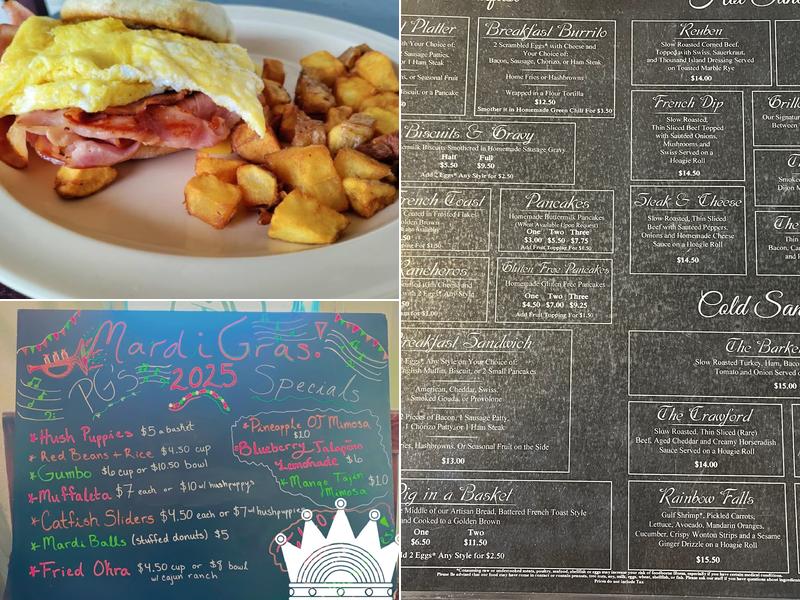 Mardi Gras!
PG'S 2025 Specials
* Hush Puppies $5 a basket
* Red Beans + Rice $4.50 cup
* Gumbo $6 cup or $10.50 bowl
* Muffaleta $7 each or $10 w/ hushpuppys
* Catfish Sliders $4.50 each or $7 w/ hushpuppies
* Mardi Balls (stuffed donuts) $5
* Fried Okra $4.50 cup or $8 bowl
w/ cajun ranch
* Pineapple OJ Mimosa
$10
* Blueberry Jalapeno
Lemonade $6
* Mango Tajin $10
/Mimosa
Platter
Your Choice of:
Sausage Patties,
or Ham Steak
ns, or Seasonal Fruit
Biscuit, or a Pancake
Breakfast Burrito
2 Scrambled Eggs* with Cheese and
Your Choice of:
Bacon, Sausage, Chorizo, or Ham Steak
Home Fries or Hashbrowns
Wrapped in a Flour Tortilla
$12.50
Smother it in Homemade Green Chili For $3.50
Biscuits & Gravy
milk Biscuits Smothered in Homemade Sausage Gravy
Half Full
$5.50 $9.50
Add 2 Eggs* Any Style for $2.50
rench Toast
Coated in Frosted Flakes
olden Brown
Pancakes
Homemade Buttermilk Pancakes
(Wheat Available Upon Request)
One Two Three
$3.00 $5.50 $7.75
Add Fruit Topping For $1.50
Rancheros
with 2 Eggs* Any Style
Gluten Free Pancakes
Homemade Gluten Free Pancakes
One Two Three
$4.50 $7.00 $9.25
Add Fruit Topping For $1.50
reakfast Sandwich
Eggs* Any Style on Your Choice of:
nglish Muffin, Biscuit, or 2 Small Pancakes
American, Cheddar, Swiss,
Smoked Gouda, or Provolone
2 Pieces of Bacon, 1 Sausage Patty,
1 Chorizo Patty, or 1 Ham Steak
ries, Hashbrowns, Or Seasonal Fruit on the Side
$13.00
ig in a Basket
Middle of our Artisan Bread, Battered French Toast Style
and Cooked to a Golden Brown
One Two
$6.50 $11.50
d 2 Eggs* Any Style for $2.50
Reuben
Slow Roasted Corned Beef,
Topped with Swiss, Sauerkraut,
and Thousand Island Dressing Served
on Toasted Marble Rye
$14.00
French Dip
Slow Roasted,
Thin Sliced Beef Topped
with Sautéed Onions,
Mushrooms and
Swiss Served on a
Hoagie Roll
$14.50
Grille
Our Signatu
Between
Steak & Cheese
Slow Roasted, Thin Sliced
Beef with Sauteed Peppers,
Onions and Homemade Cheese
Sauce on a Hoagie Roll
$14.50
Smoke
Dijon
The
Bacon, Ca
Cold San
The Barke
Slow Roasted Turkey, Ham, Baco
Tomato and Onion Served o
$15.00
The Crawford
Slow Roasted, Thin Sliced (Rare)
Beef, Aged Cheddar and Creamy Horseradish
Sauce Served on a Hoagie Roll
$14.00
Rainbow Falls
Gulf Shrimp*, Pickled Carrots,
Lettuce, Avocado, Mandarin Oranges,
Cucumber, Crispy Wonton Strips and a Sesame
Ginger Drizzle on a Hoagie Roll
$15.50
Prices do not include Tax